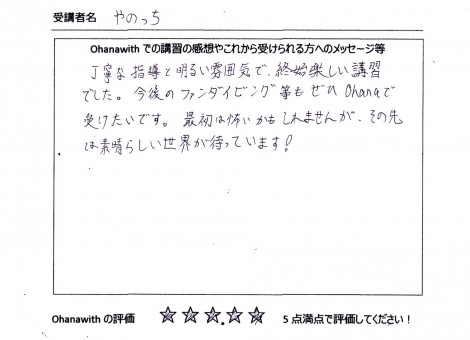 受講者名 やのっち
Ohanawith での講習の感想やこれから受けられる方へのメッセージ等
丁寧な指導と明るい雰囲気で、終始楽しい講習
でした。今後のファンダイビング等もぜひ Ohanaで
受けたいです。最初は怖いかもしれませんが、その先
は素晴らしい世界が待っています!
Ohanawith の評価 ☆☆☆☆☆ 5 点満点で評価してください!